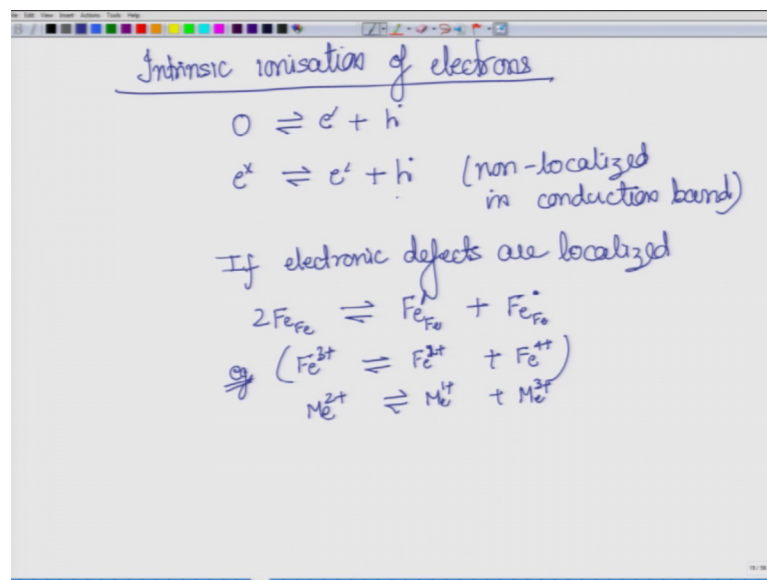 File Edit View Insert Actions Tools Help
Intrinsic ionisation of electrons
O ⇌ e' + h•
eˣ ⇌ e' + h• (non-localized
in conduction band)
If electronic defects are localized
2Fe_Fe ⇌ Fe'_Fe + Fe•_Fe
eg (Fe³⁺ ⇌ Fe²⁺ + Fe⁴⁺)
Me²⁺ ⇌ Me¹⁺ + Me³⁺